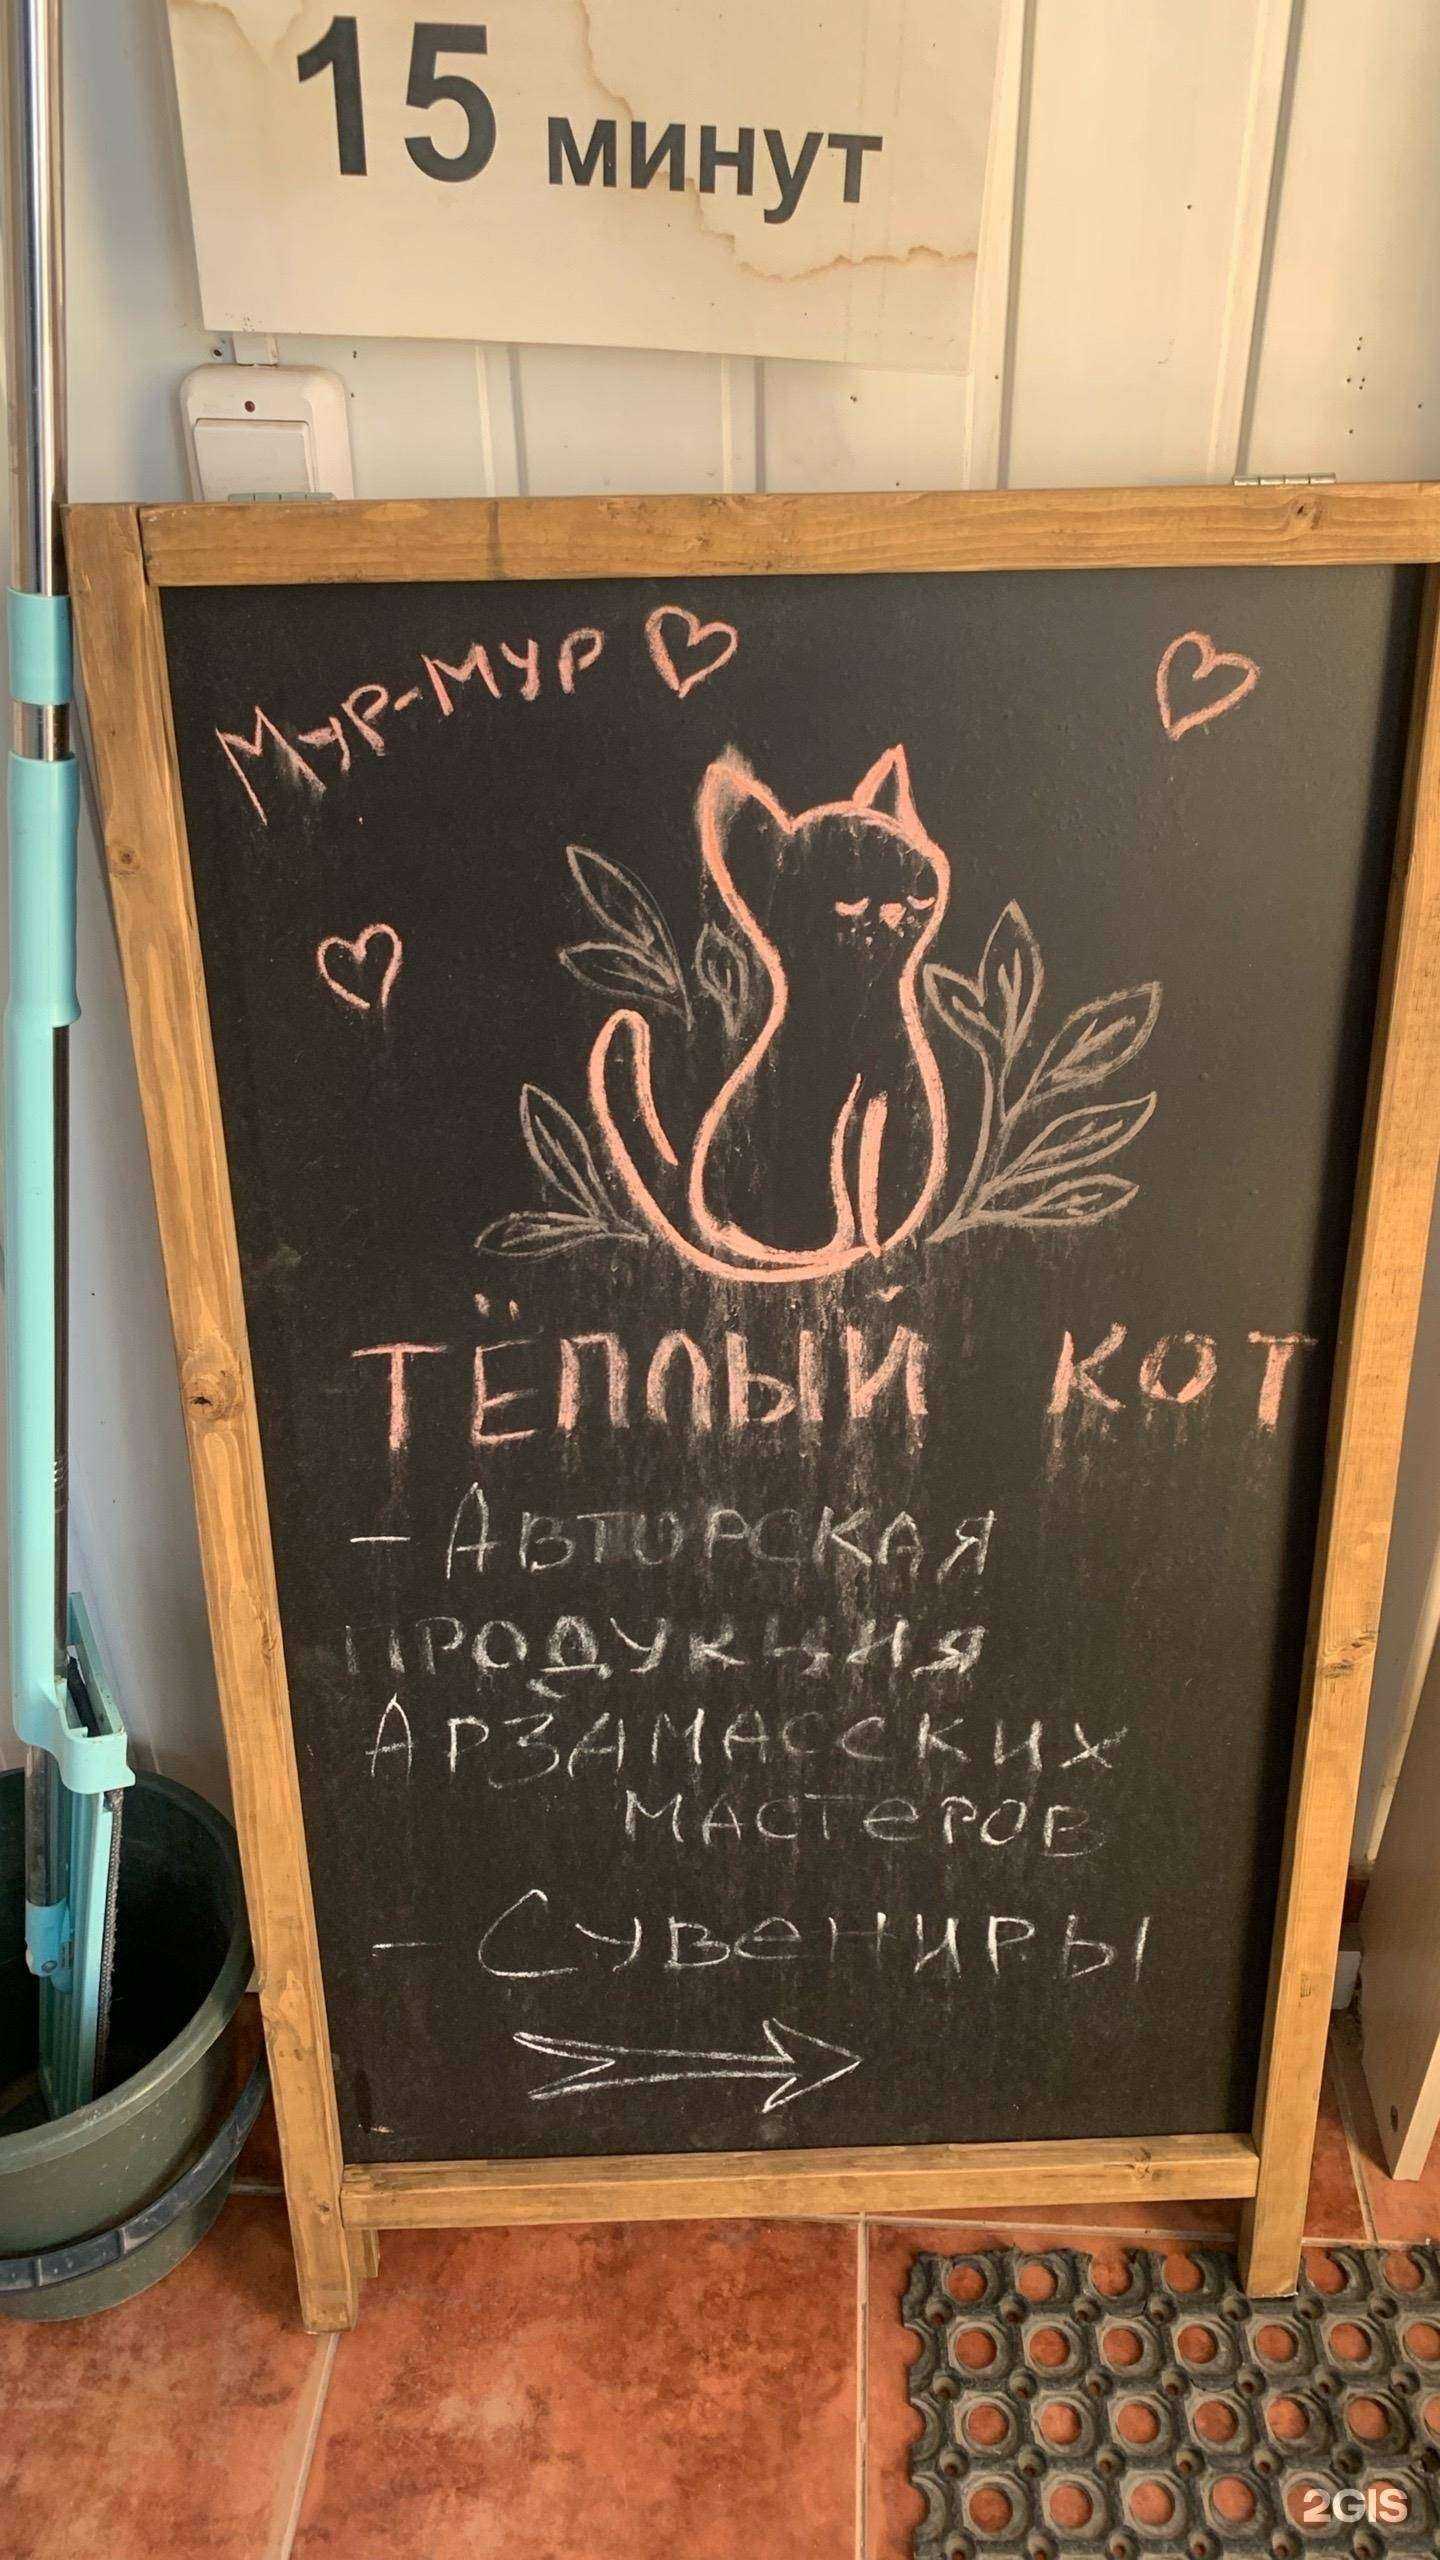 15 минут
Мур-мур
ТЁПЛЫЙ КОТ
- Авторская
продукция
Арзамасских
мастеров
- Сувениры
2GIS